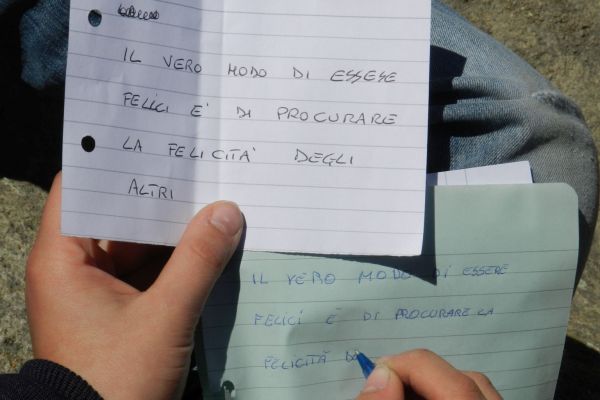 IL VERO MODO DI ESSESE
FELICI E' DI PROCURARE
LA FELICITA' DEGLI
ALTRI
IL VERO MODO DI ESSERE
FELICI E' DI PROCURARE LA
FELICITÀ